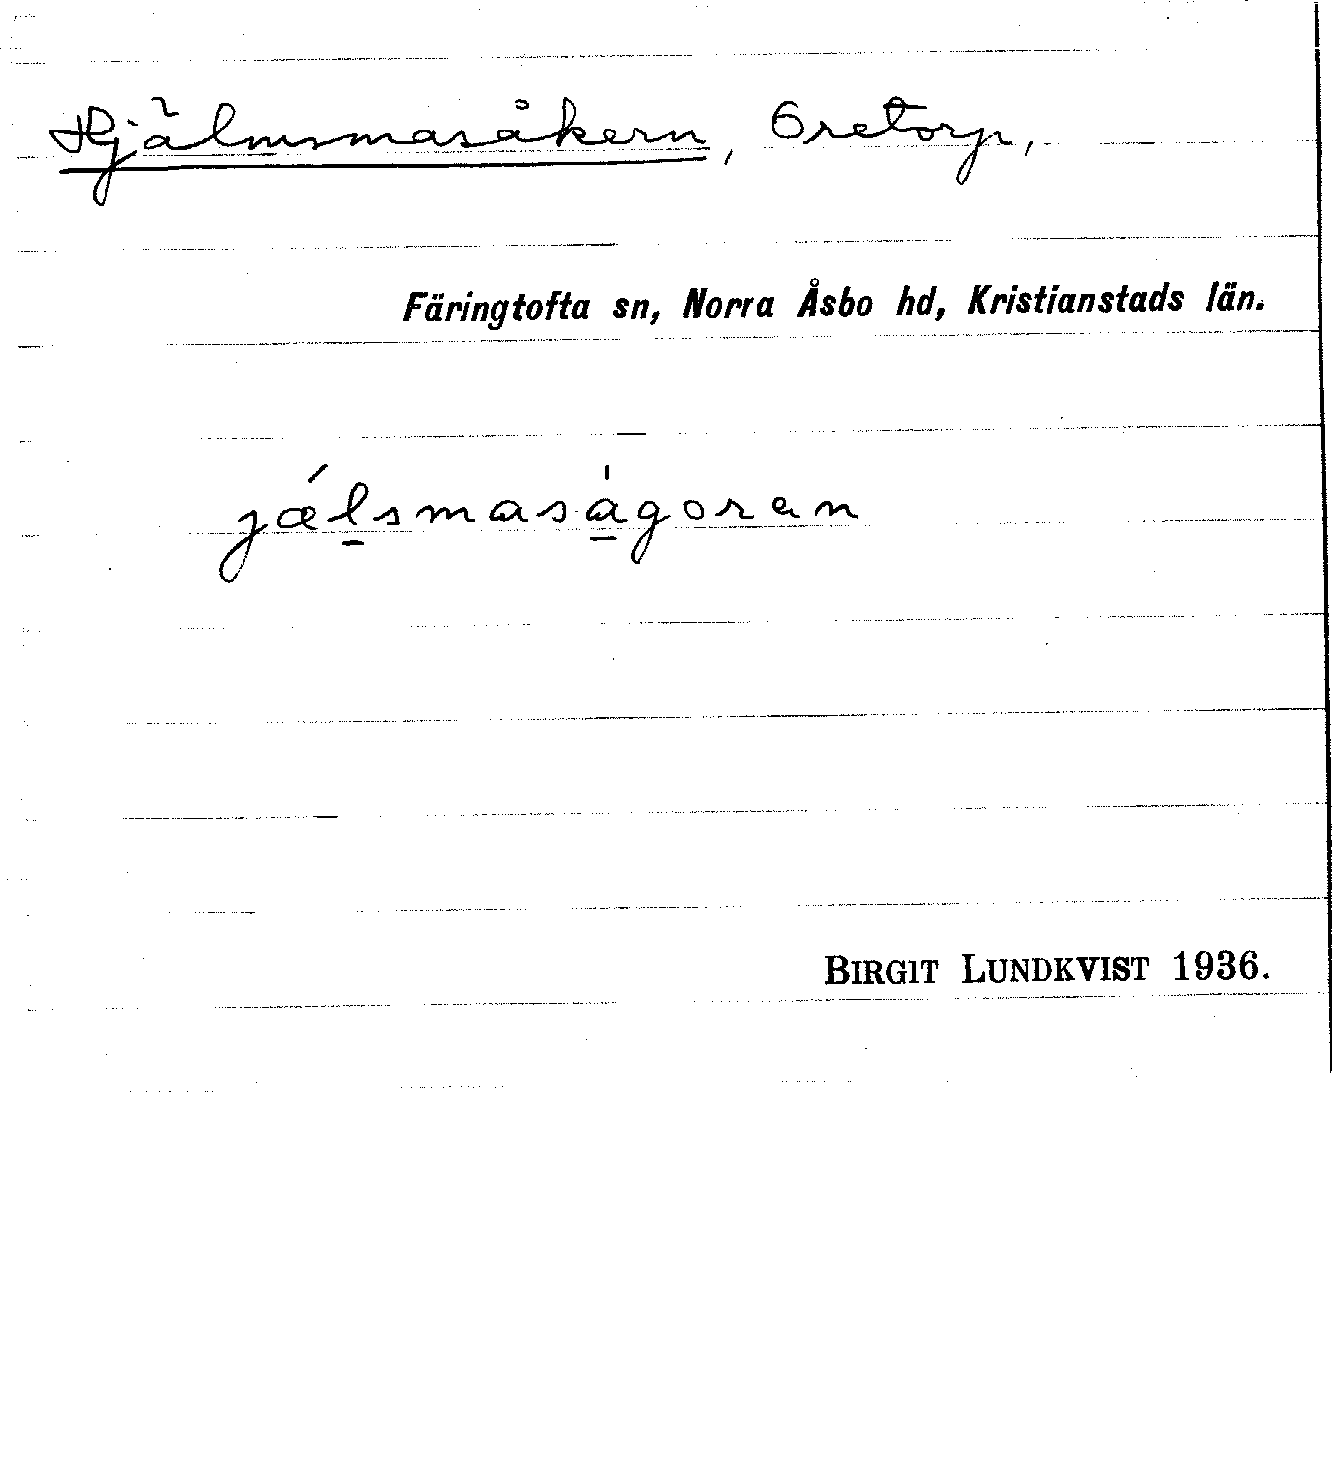 Hjälmsmasåkern, Oretorp,
Färingtofta sn, Norra Åsbo hd, Kristianstads län.
jǽlsmaságoran
BIRGIT LUNDKVIST 1936.